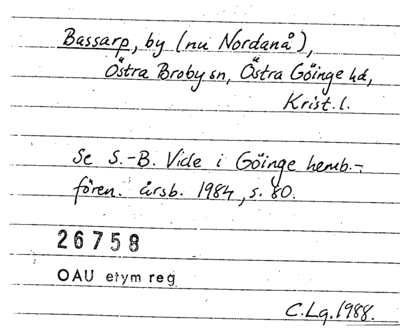 Bassarp, by (nu Nordanå),
Östra Broby sn, Östra Göinge hd,
Krist. l.
Se S.-B. Vide i Göinge hemb.-
fören. årsb. 1984, s. 80.
26758
OAU etym reg
C.Lg. 1988.